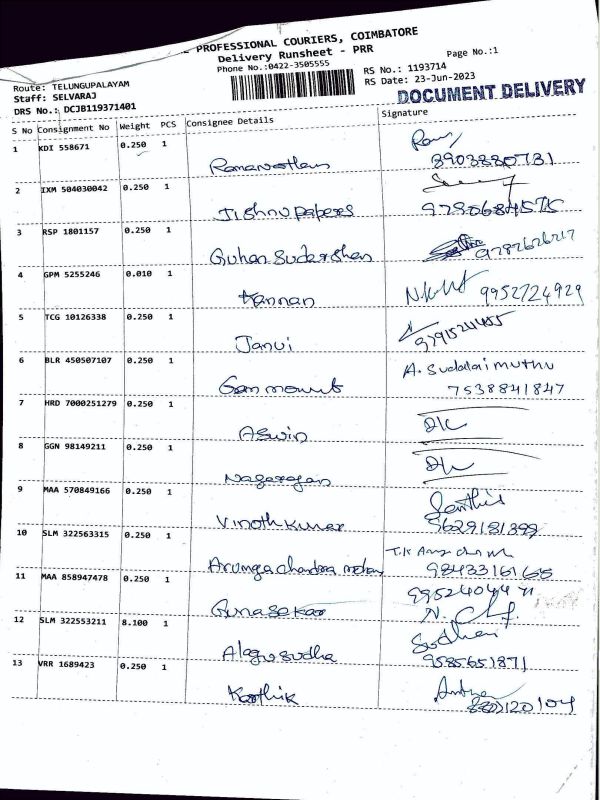 PROFESSIONAL COURIERS, COIMBATORE
Delivery Runsheet - PRR
Phone No.:0422-3505555
Page No.:1
RS No.: 1193714
RS Date: 23-Jun-2023
Route: TELUNGUPALAYAM
Staff: SELVARAJ
DRS No.: DCJB119371401
DOCUMENT DELIVERY
S No Consignment No Weight PCS Consignee Details Signature
1 KDI 558671 0.250 1
Ramanathan 8903880731
2 IXM 504030042 0.250 1
Jishnu Papers 9790684575
3 RSP 1801157 0.250 1
Guhan Sudarshan 9787626217
4 GPM 5255246 0.010 1
Kannan 9952724929
5 TCG 10126338 0.250 1
Janvi 9791524455
6 BLR 450507107 0.250 1 A. Sudalai muthu
7538841847
7 HRD 7000251279 0.250 1
Aswin
8 GGN 98149211 0.250 1
Nagarajan
9 MAA 570849166 0.250 1 Senthil
Vinoth kumar 8629181399
10 SLM 322563315 0.250 1
Arumga chandra mohan 9843316165
11 MAA 858947478 0.250 1 9952404471
Gunasekar
12 SLM 322553211 8.100 1 Sudhan
Alagu sudha 9585651871
13 VRR 1689423 0.250 1
Karthik